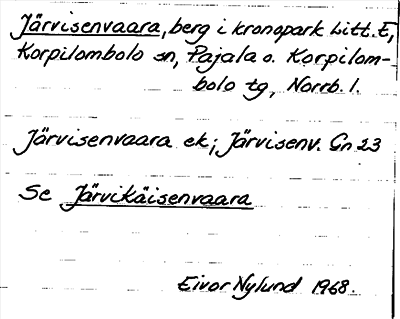 Järvisenvaara, berg i kronopark Litt. E,
Korpilombolo sn, Pajala o. Korpilom-
bolo tg, Norrb. l.
Järvisenvaara ek; Järvisenv. Gn 23
Se Järvikäisenvaara
Eivor Nylund 1968.